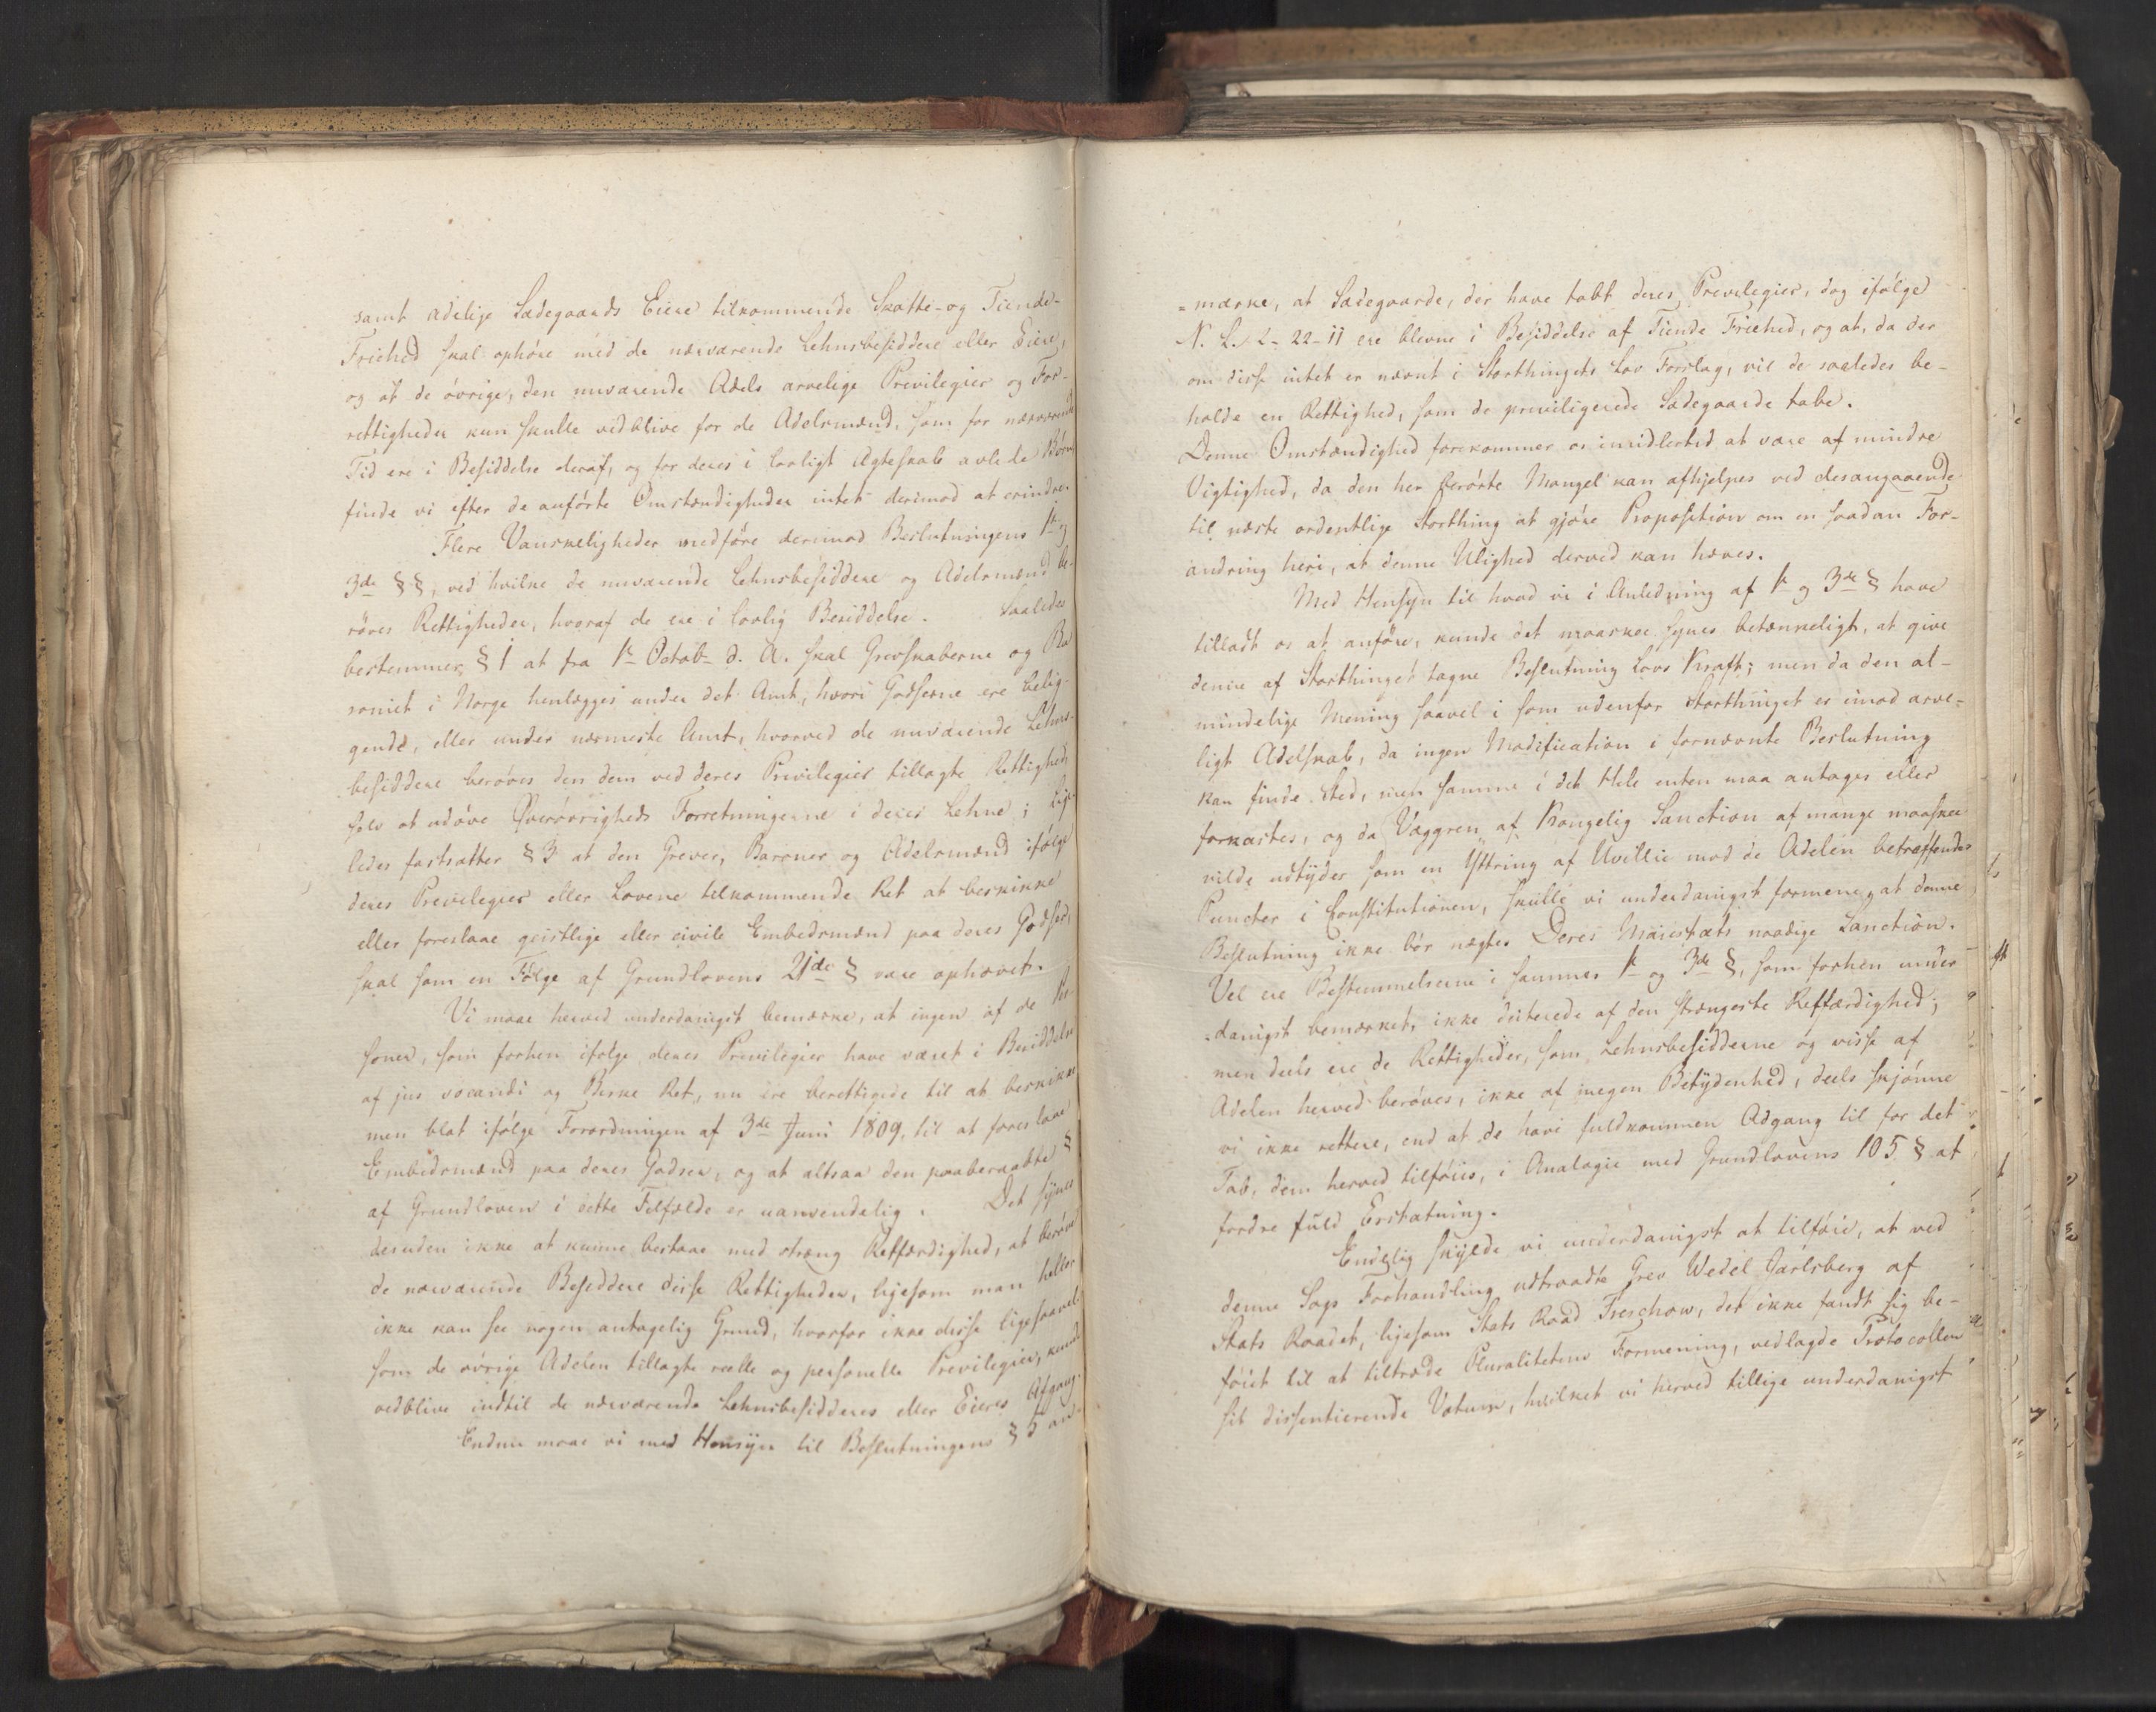 samt adelige Sædegaards Eiere tilkommende Skatte- og Tiende-
Friehed skal ophøre med de nærværende Lehnsbesiddere eller Eiere,
og at de øvrige, den nuværende Adels arvelige Previlegier og For-
rettigheder kun skulle vedblive for de Adelsmænd, som for nærværende
Tid ere i Besiddelse deraf, og for deres i lovligt Ægteskab avlede Børn
finde vi efter de anførte Omstændigheder intet derimod at erindre.
Flere Vanskeligheder medføre derimod Beslutningens 1te og
3die §§, ved hvilke de nuværende Lehnsbesiddere og Adelsmænd be-
røves Rettigheder, hvoraf de ere i lovlig Besiddelse. Saaledes
bestemmer § 1 at fra 1te Octob- d. A. skal Grevskaberne og Ba
roniet i Norge henlægges under det Amt, hvori Godserne ere belig-
gende, eller under nærmeste Amt, hvorved de nuværende Lehns-
besiddere berøves den dem ved deres Privilegier tillagte Rettighed
selv at udøve Øverøvrigheds Forretningerne i deres Lehne; lige-
ledes fastsætter § 3 at den Grever, Baroner og Adelsmænd ifølge
deres Previlegier eller Lovene tilkommende Ret at beskikke
eller foreslaae geistlige eller civile Embedsmænd paa deres Godser,
skal som en Følge af Grundlovens 21de § være ophævet.
Vi maae herved underdanigst bemærke, at ingen af de Per-
soner, som forhen ifølge deres Previlegier have været i Besiddelse
af jus vocandi og Birke Ret, nu ere berettigede til at beskikke
men blot ifølge Forordningen af 3die Juni 1809, til at foreslaae
Embedsmænd paa deres Godser, og at altsaa den paaberaabte §
af Grundloven i dette Tilfælde er uanvendelig. Det synes
desuden ikke at kunne bestaae med stræng Retfærdighed, at berøve
de nærværende Besiddere disse Rettigheder, ligesom man heller
ikke kan see nogen antagelig Grund, hvorfor ikke disse ligesaavel
som de øvrige Adelen tillagte reelle og personelle Previlegier, kunde
vedblive indtil de nærværende Lehnsbesidderes eller Eieres Afgang.
Endnu maae vi med Hensyn til Beslutningens § 5 an-
=mærke, at Sædegaarde, der have tabt deres Previlegier, dog ifølge
N. L. 2-22-11 ere blevne i Besiddelse af Tiende Friehed, og at, da der
om disse intet er nævnt i Storthingets Lov Forslag, vil de saaledes be-
holde en Rettighed, som de previligerede Sædegaarde tabe.
Denne Omstændighed forekommer os imidlertid at være af mindre
Vigtighed, da den her berørte Mangel kan afhjelpes ved desangaaende
til næste ordentlige Storthing at gjøre Proposition om en saadan For-
andring heri, at denne Ulighed derved kan hæves.
Med Hensyn til hvad vi i Anledning af 1te og 3de § have
tilladt os at anføre, kunde det maaskee synes betænkeligt, at give
denne af Storthinget tagne Beslutning Lovs Kraft; men da den al-
mindelige Mening saavel i som udenfor Storthinget er imod arve-
ligt Adelskab, da ingen Modification i fornævnte Beslutning
kan finde Sted, men samme i det Hele enten maa antages eller
forkastes, og da Vægren af Kongelig Sanction af mange maaskee
vilde udtydes som en Yttring af Uvillie mod de Adelen betreffendes
Puncter i Constitutionen, skulle vi underdanigst formene, at denne
Beslutning ikke bør nægtes Deres Majestæts naadige Sanction.
Vel ere Bestemmelserne i sammes 1te og 3de §, som forhen under
=danigst bemærket, ikke dicterede af den strængeste Retfærdighed;
men deels ere de Rettigheder, som Lehnsbesidderne og visse af
Adelen herved berøves, ikke af megen Betydenhed, deels skjønne
vi ikke rettere, end at de have fuldkommen Adgang til for det
Tab, dem herved tilføies, i Analogie med Grundlovens 105 § at
fordre fuld Erstatning.
Endelig skylde vi underdanigst at tilføie, at ved
denne Sags Forhandling udtraadte Grev Wedel Jarlsberg af
Stats Raadet, ligesom Stats Raad Treschow, det ikke fandt sig be-
føiet til at tiltræde Pluralitetens Formening, vedlagde Protocollen
sit dissentierende Votum, hvilket vi herved tillige underdanigst